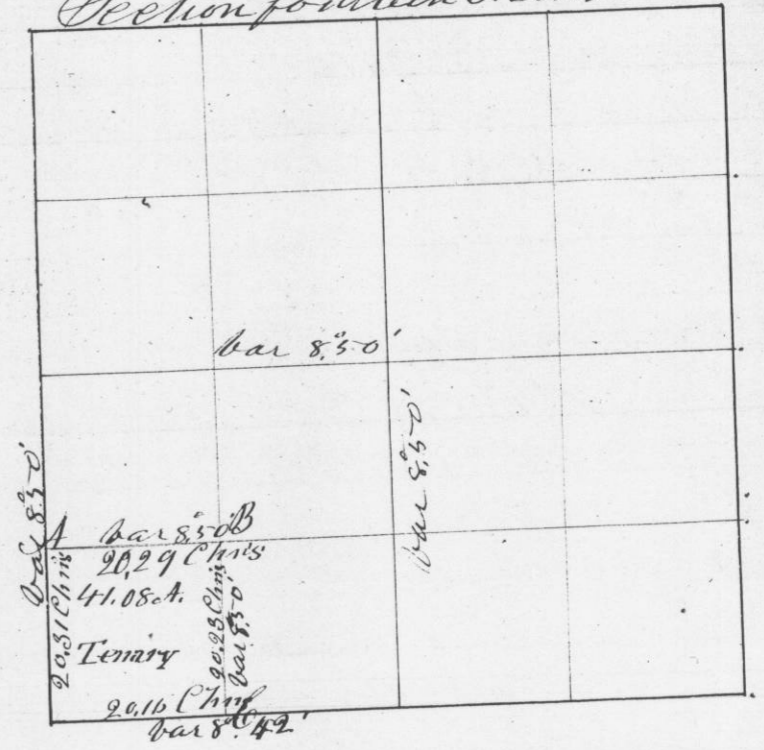 Section fourteen
Var 8°.50'
Var 8°.50'
Var 8°.50'
A Var 8°.50' B
20.29 Chns
41.08 A.
20.31 Chns
Temiry
20.23 Chns
Var 8°.50'
20.16 Chns
C
Var 8°.42'